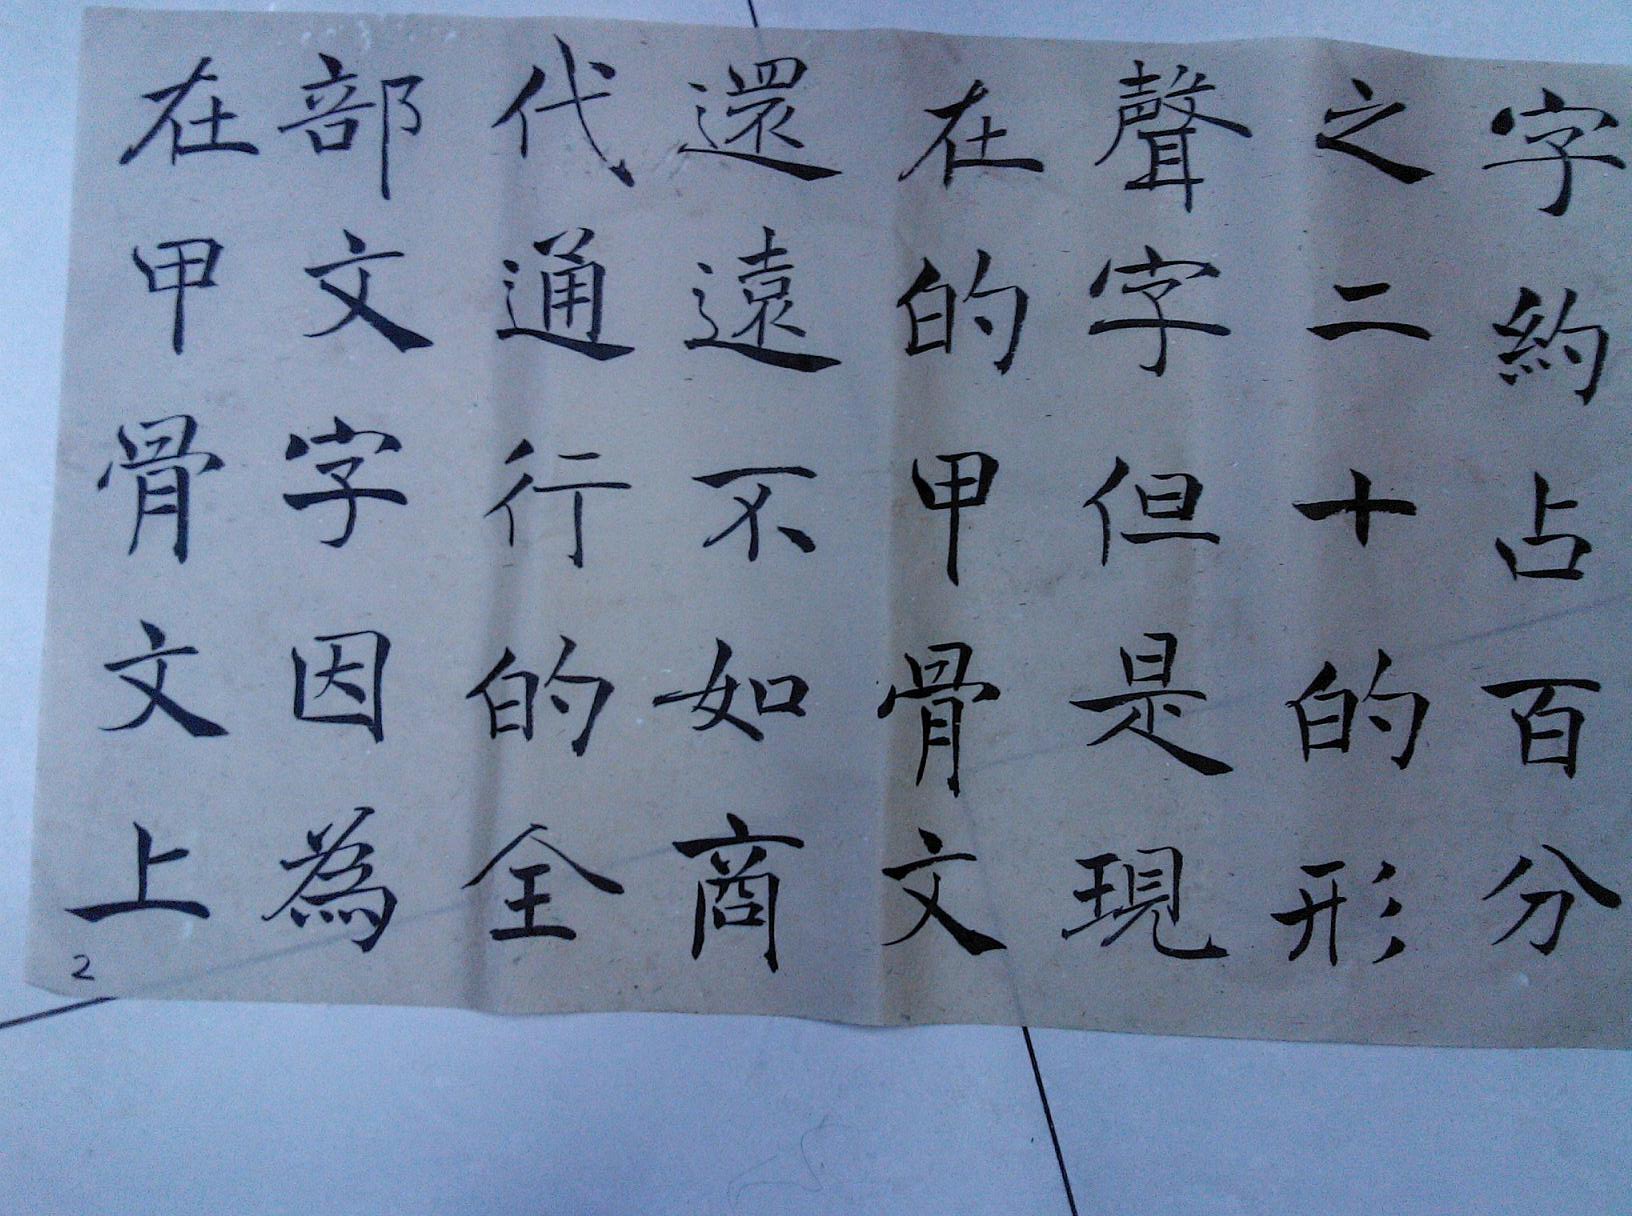 字約占百分
之二十的形
聲字但是現
在的甲骨文
還遠不如商
代通行的全
部文字因為
在甲骨文上
2